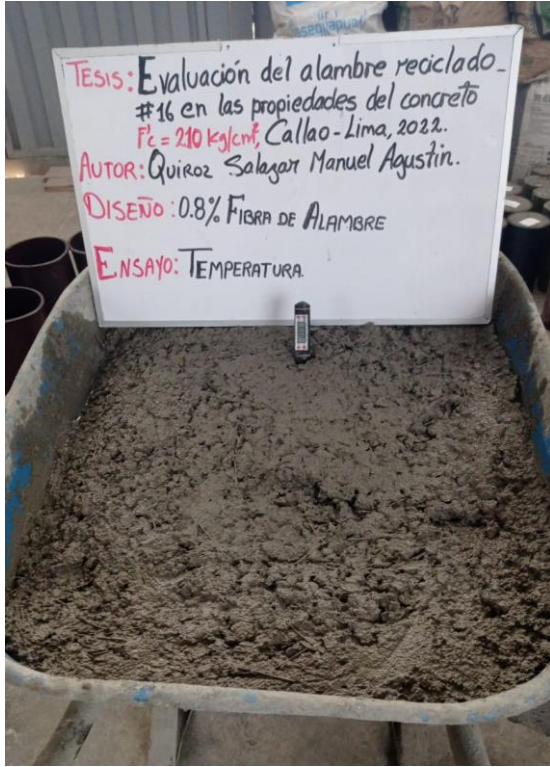 TESIS: Evaluación del alambre reciclado
#16 en las propiedades del concreto
F'c = 210 kg/cm², Callao - Lima, 2022.
AUTOR: Quiroz Salazar Manuel Agustin.
DISEÑO: 0.8% FIBRA DE ALAMBRE
ENSAYO: TEMPERATURA.